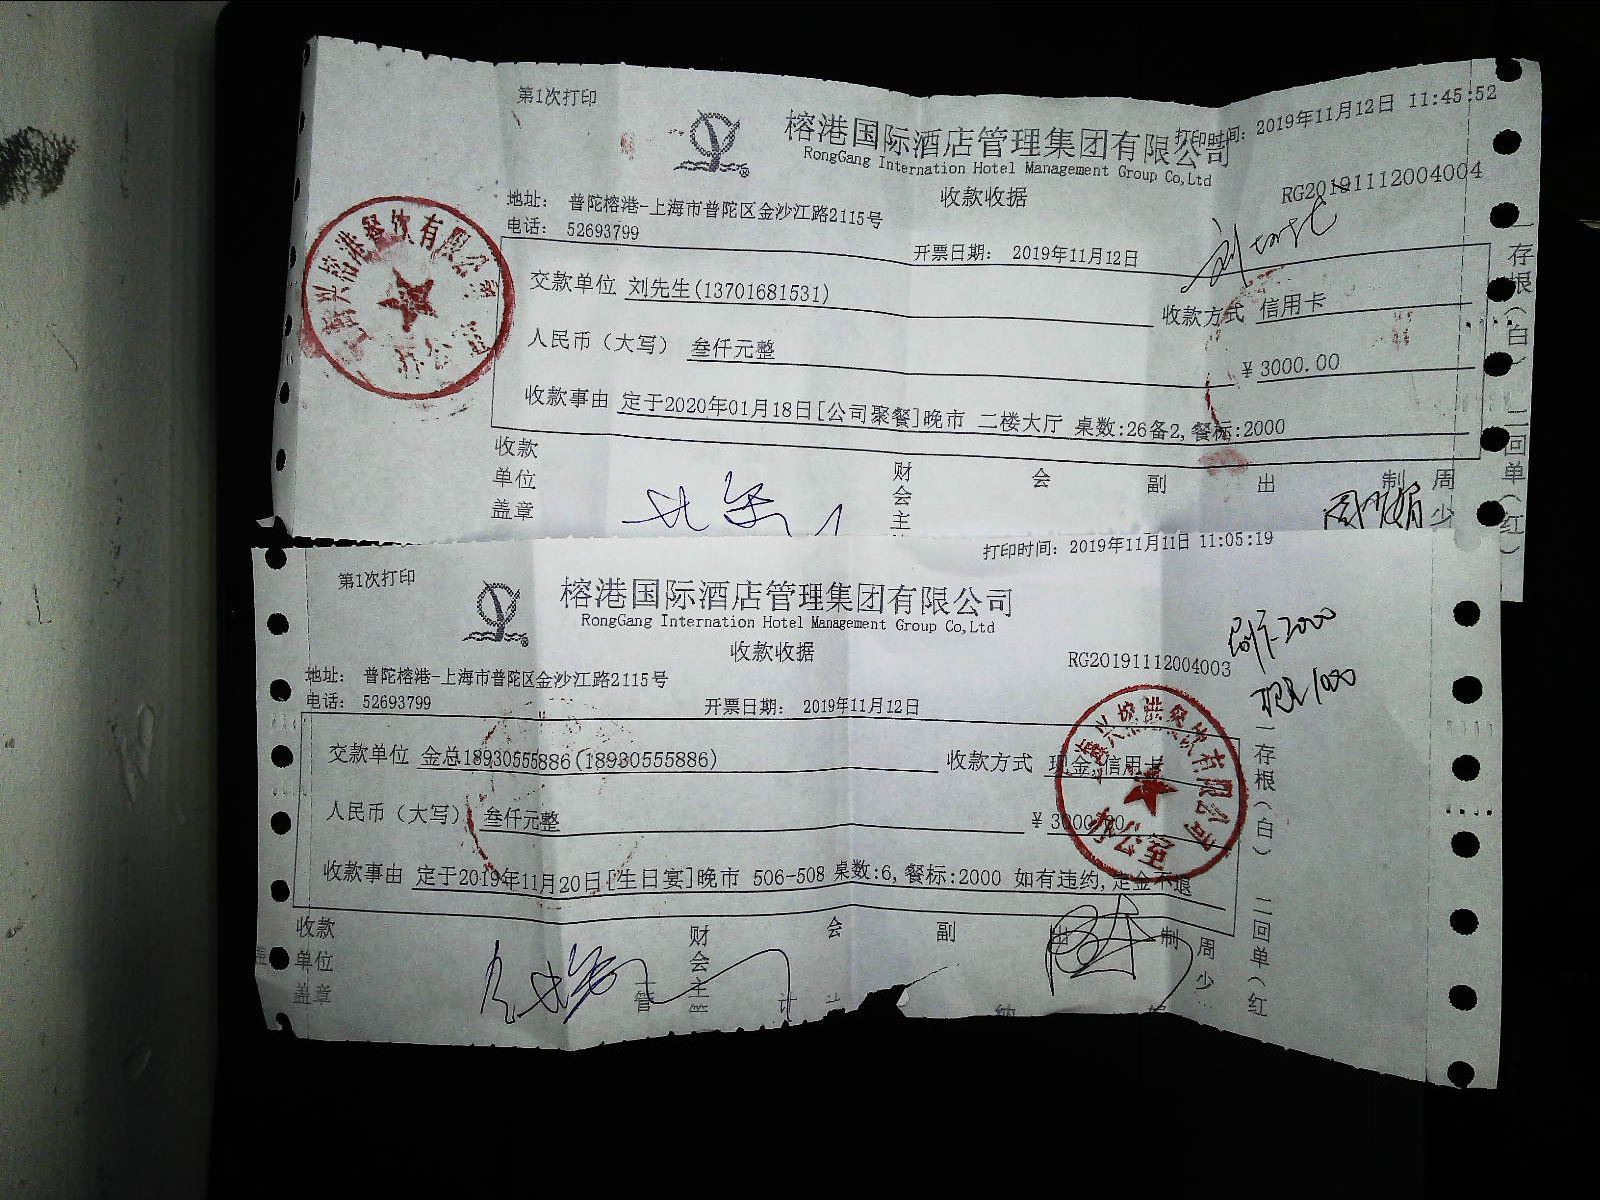 第1次打印
打印时间: 2019年11月12日 11:45:52
榕港国际酒店管理集团有限公司
RongGang International Hotel Management Group Co,Ltd
收款收据
RG20191112004004
地址: 普陀榕港-上海市普陀区金沙江路2115号
电话: 52693799
开票日期: 2019年11月12日
交款单位 刘先生(13701681531)
收款方式 信用卡
人民币（大写） 叁仟元整
¥ 3000.00
收款事由 定于2020年01月18日[公司聚餐]晚市 二楼大厅 桌数:26备2,餐标:2000
收款单位盖章
财会主
会
副
出
制
周少
一存根(白) 二回单(红)
榕港餐饮有限公
办公室
第1次打印
打印时间: 2019年11月11日 11:05:19
榕港国际酒店管理集团有限公司
RongGang International Hotel Management Group Co,Ltd
收款收据
RG20191112004003
刷卡2000
现金1000
地址: 普陀榕港-上海市普陀区金沙江路2115号
电话: 52693799
开票日期: 2019年11月12日
交款单位 金总18930555886(18930555886)
收款方式 现金,信用卡
人民币（大写） 叁仟元整
¥ 3000.00
收款事由 定于2019年11月20日[生日宴]晚市 506-508 桌数:6,餐标:2000 如有违约,定金不退
收款单位盖章
财会主管
会
副
出
制
周少
一存根(白) 二回单(红
餐饮有限公司
办公室